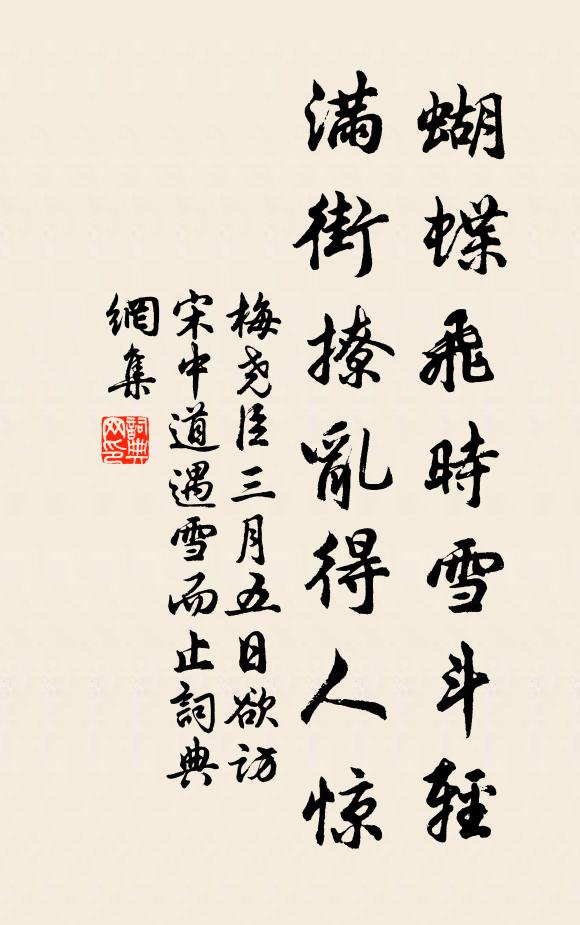 蝴蝶飛時雪斗輕
滿街撩亂得人惊
梅堯臣三月五日欲訪
宋中道遇雪而止詞典
網集
詞典
网印